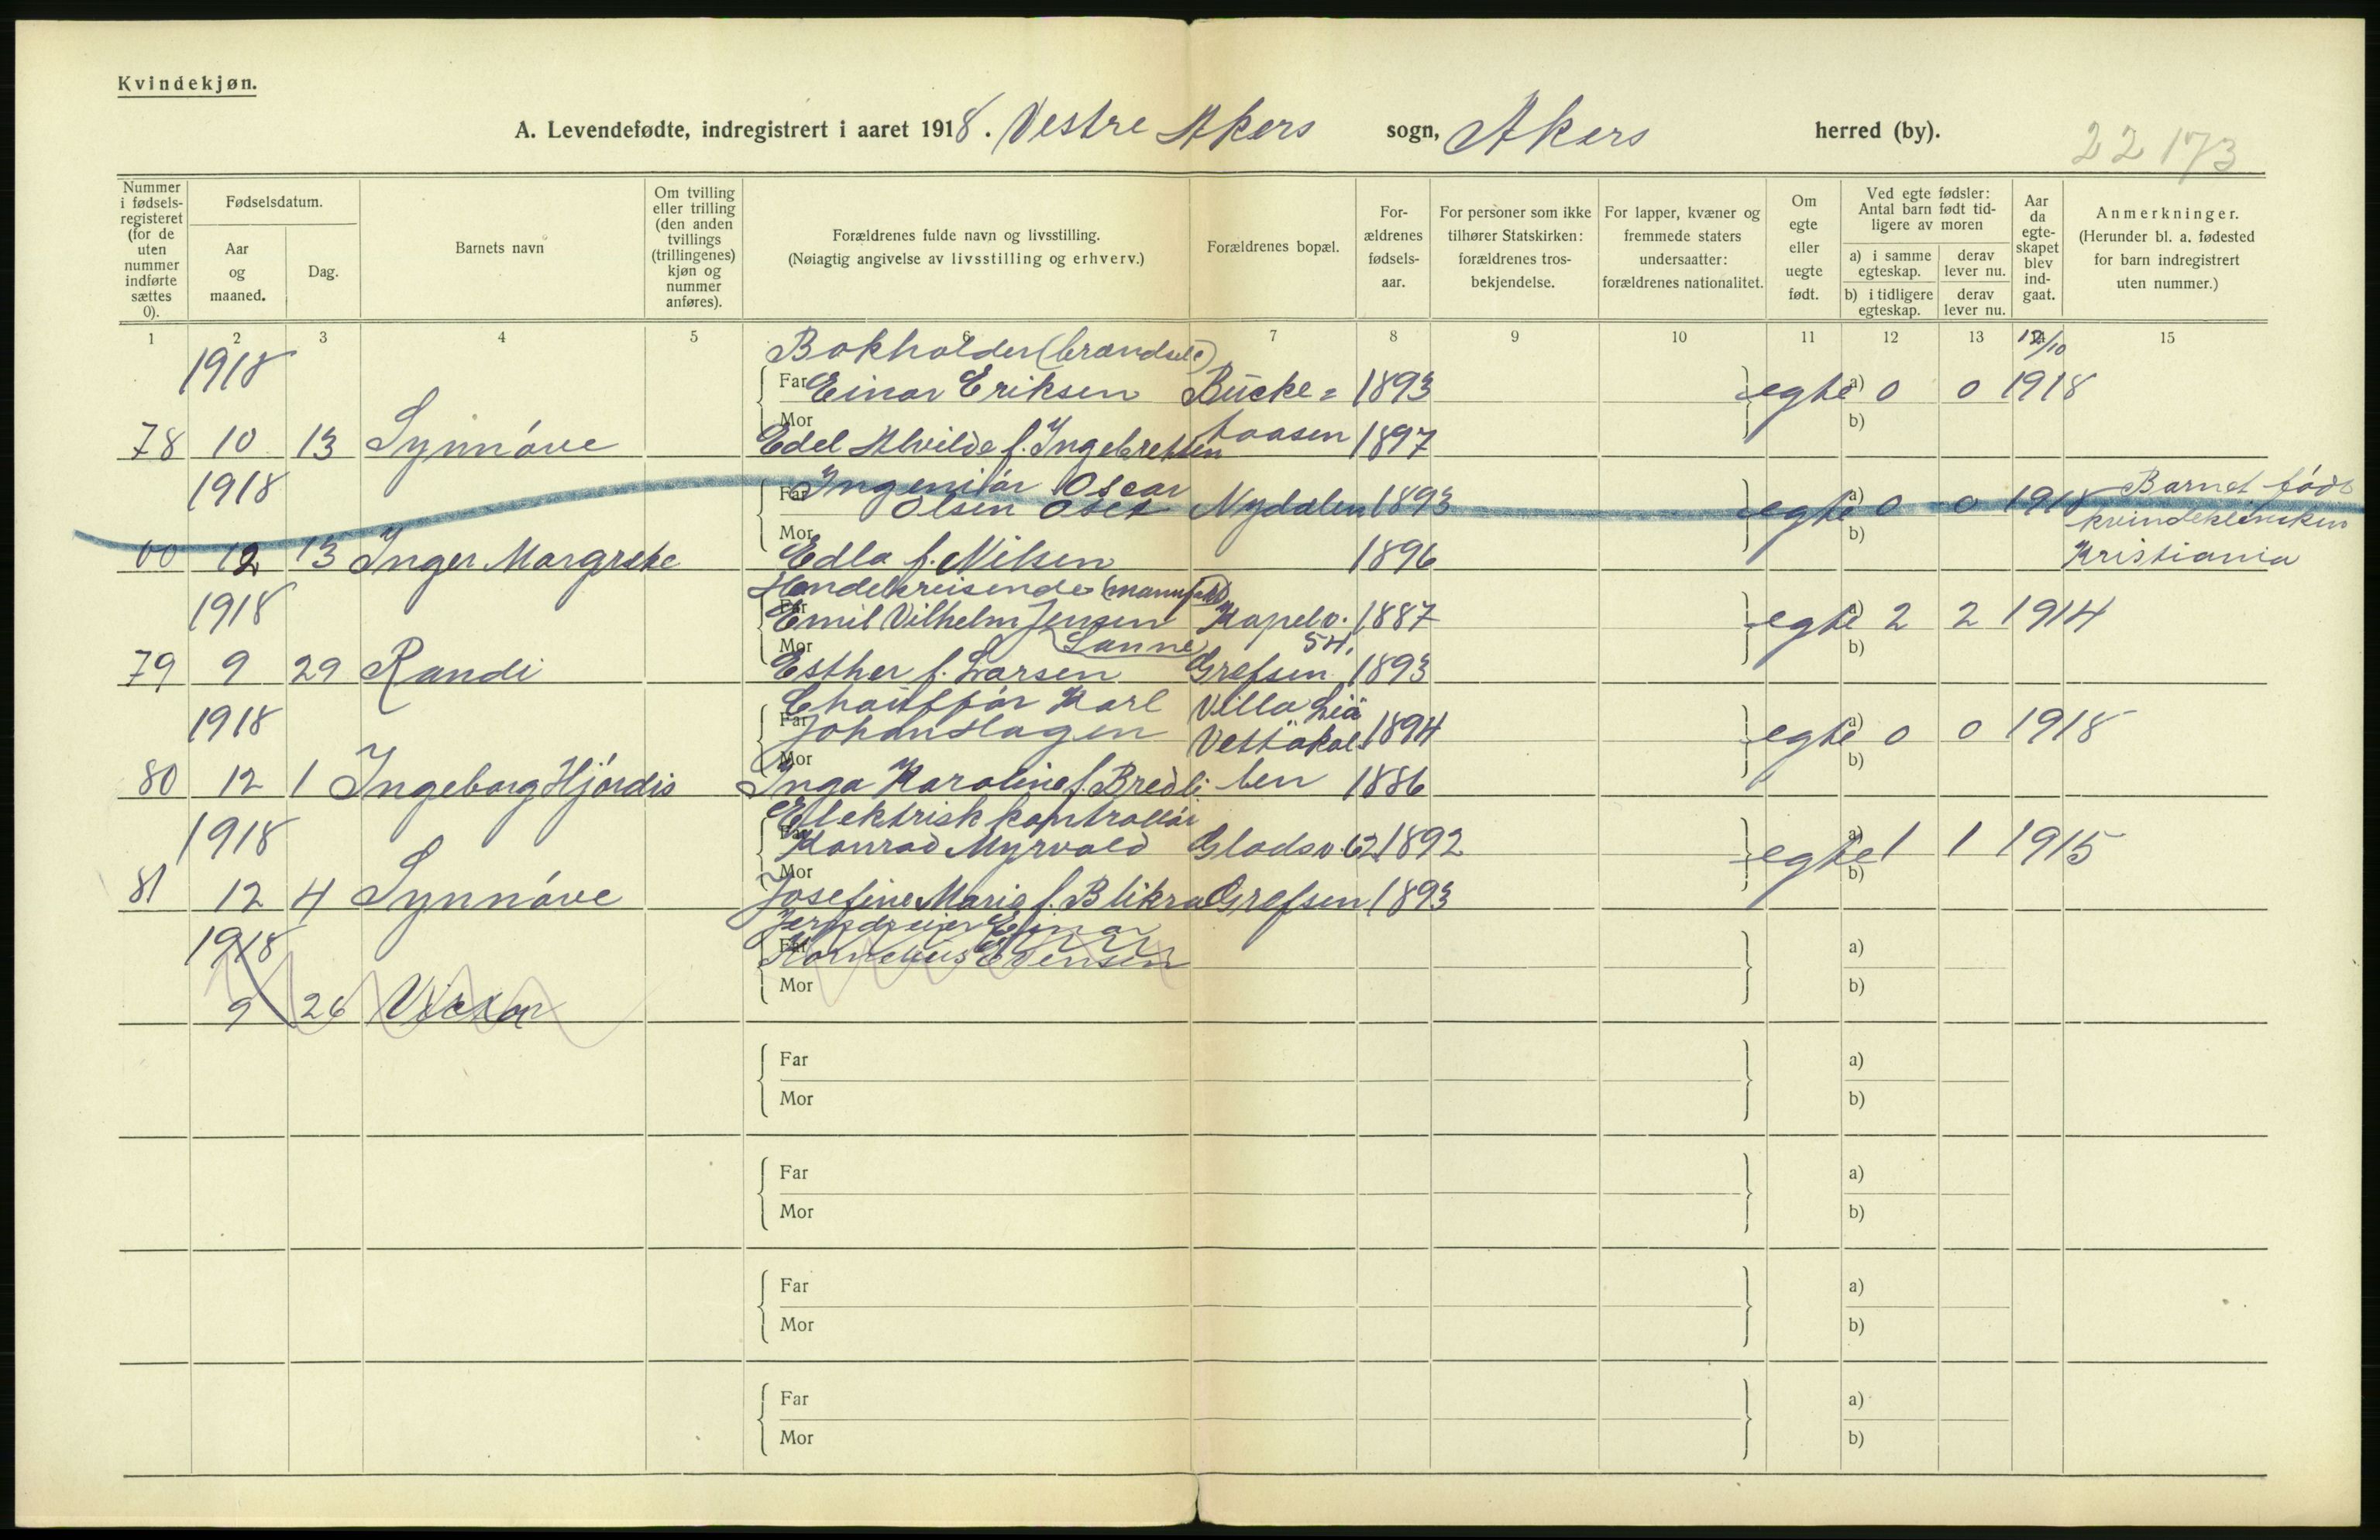 Kvindekjøn.
A. Levendefødte, indregistrert i aaret 1918. Vestre Akers sogn, Akers herred (by).
22173
Nummer i fødsels-registeret (for de uten nummer indførte sættes 0).
Fødselsdatum.
Aar og maaned.
Dag.
Barnets navn
Om tvilling eller trilling (den anden tvillings (trillingenes) kjøn og nummer anføres).
Forældrenes fulde navn og livsstilling.
(Nøiagtig angivelse av livsstilling og erhverv.)
Forældrenes bopæl.
For-ældrenes fødsels-aar.
For personer som ikke tilhører Statskirken: forældrenes tros-bekjendelse.
For lapper, kvæner og fremmede staters undersaatter: forældrenes nationalitet.
Om egte eller uegte født.
Ved egte fødsler: Antal barn født tid-ligere av moren
a) i samme egteskap.
derav lever nu.
b) i tidligere egteskap.
derav lever nu.
Aar da egte-skapet blev ind-gaat.
Anmerkninger.
(Herunder bl. a. fødested for barn indregistrert uten nummer.)
1 2 3 4 5 6 7 8 9 10 11 12 13 15
Bokholder
1918 Far Einar Eriksen Bücke= 1893 egte a) 0 0 12/10 1918
78 10 13 Synnóve Mor Edel Alvilde f. Ingebretsen haasen 1897 b)
Ingeniör Oscar
1918 Far Olsen Oset Nydalen 1893 egte a) 0 0 1918 Barnet födt
kvindeklinikken
00 12 13 Inger Margrete Mor Edla f. Nilsen 1896 b) Kristiania
Handelsreisende
1918 Far Emil Vilhelm Jensen Kapelv. 1887 egte a) 2 2 1914
Sanne 54,
79 9 29 Randi Mor Esther f. Larsen Grefsen 1893 b)
Chaufför Karl Villa Liä
1918 Far Johan Hagen Vettakol= 1894 egte a) 0 0 1918
80 12 1 Ingeborg Hjördis Mor Inga Karoline f. Bredli len 1886 b)
Elektrisk kontrollör
1918 Far Konrad Myrvold Gladsv. 62 1892 egte a) 1 1 1915
81 12 4 Synnöve Mor Josefine Marie f. Blikra Grefsen 1893 b)
Jerndreier Einar
1918 Far Kornelius Evensen a)
9 26 Victor Mor b)
Far a)
Mor b)
Far a)
Mor b)
Far a)
Mor b)
Far a)
Mor b)